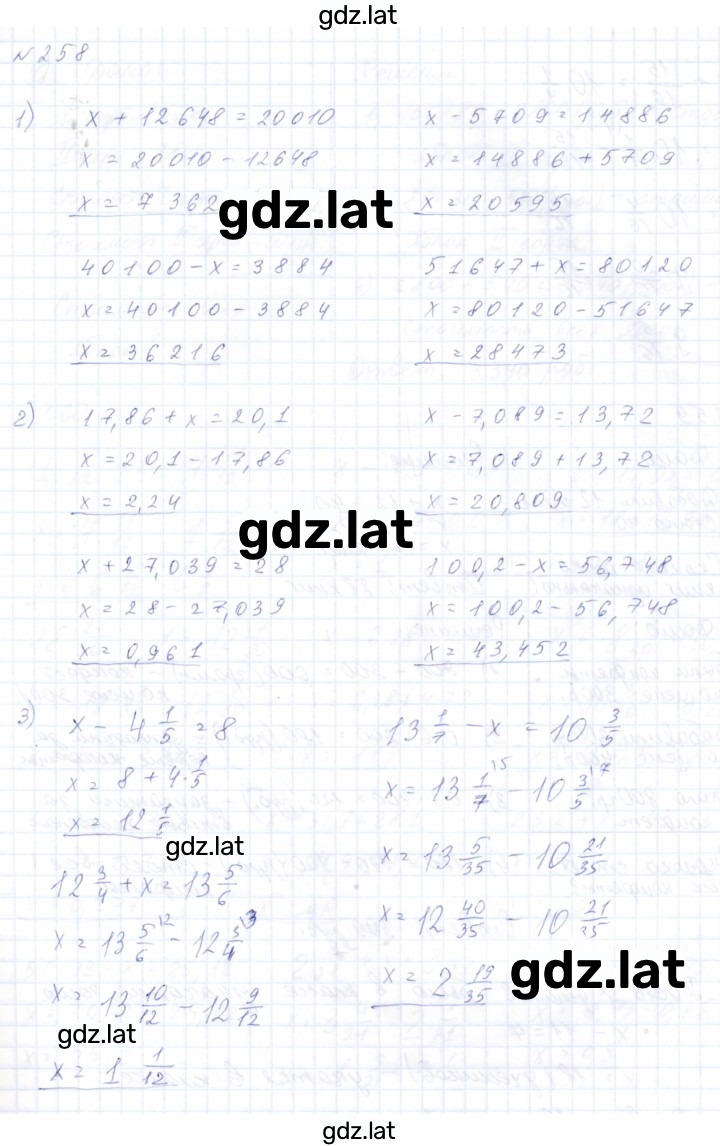 gdz.lat
№258
1) x + 12648 = 20010
x = 20010 - 12648
x = 7362
x - 5709 = 14886
x = 14886 + 5709
x = 20595
gdz.lat
40100 - x = 3884
x = 40100 - 3884
x = 36216
51647 + x = 80120
x = 80120 - 51647
x = 28473
2) 17,86 + x = 20,1
x = 20,1 - 17,86
x = 2,24
x - 7,089 = 13,72
x = 7,089 + 13,72
x = 20,809
gdz.lat
x + 27,039 = 28
x = 28 - 27,039
x = 0,961
100,2 - x = 56,748
x = 100,2 - 56,748
x = 43,452
3) x - 4 1/5 = 8
x = 8 + 4 · 1/5
x = 12 1/5
gdz.lat
12 3/4 + x = 13 5/6
x = 13 5/6 \2 - 12 3/4 \3
x = 13 10/12 - 12 9/12
gdz.lat
x = 1 1/12
13 1/7 - x = 10 3/5
x = 13 1/7 \5 - 10 3/5 \7
x = 13 5/35 - 10 21/35
x = 12 40/35 - 10 21/35
x = 2 19/35
gdz.lat
gdz.lat